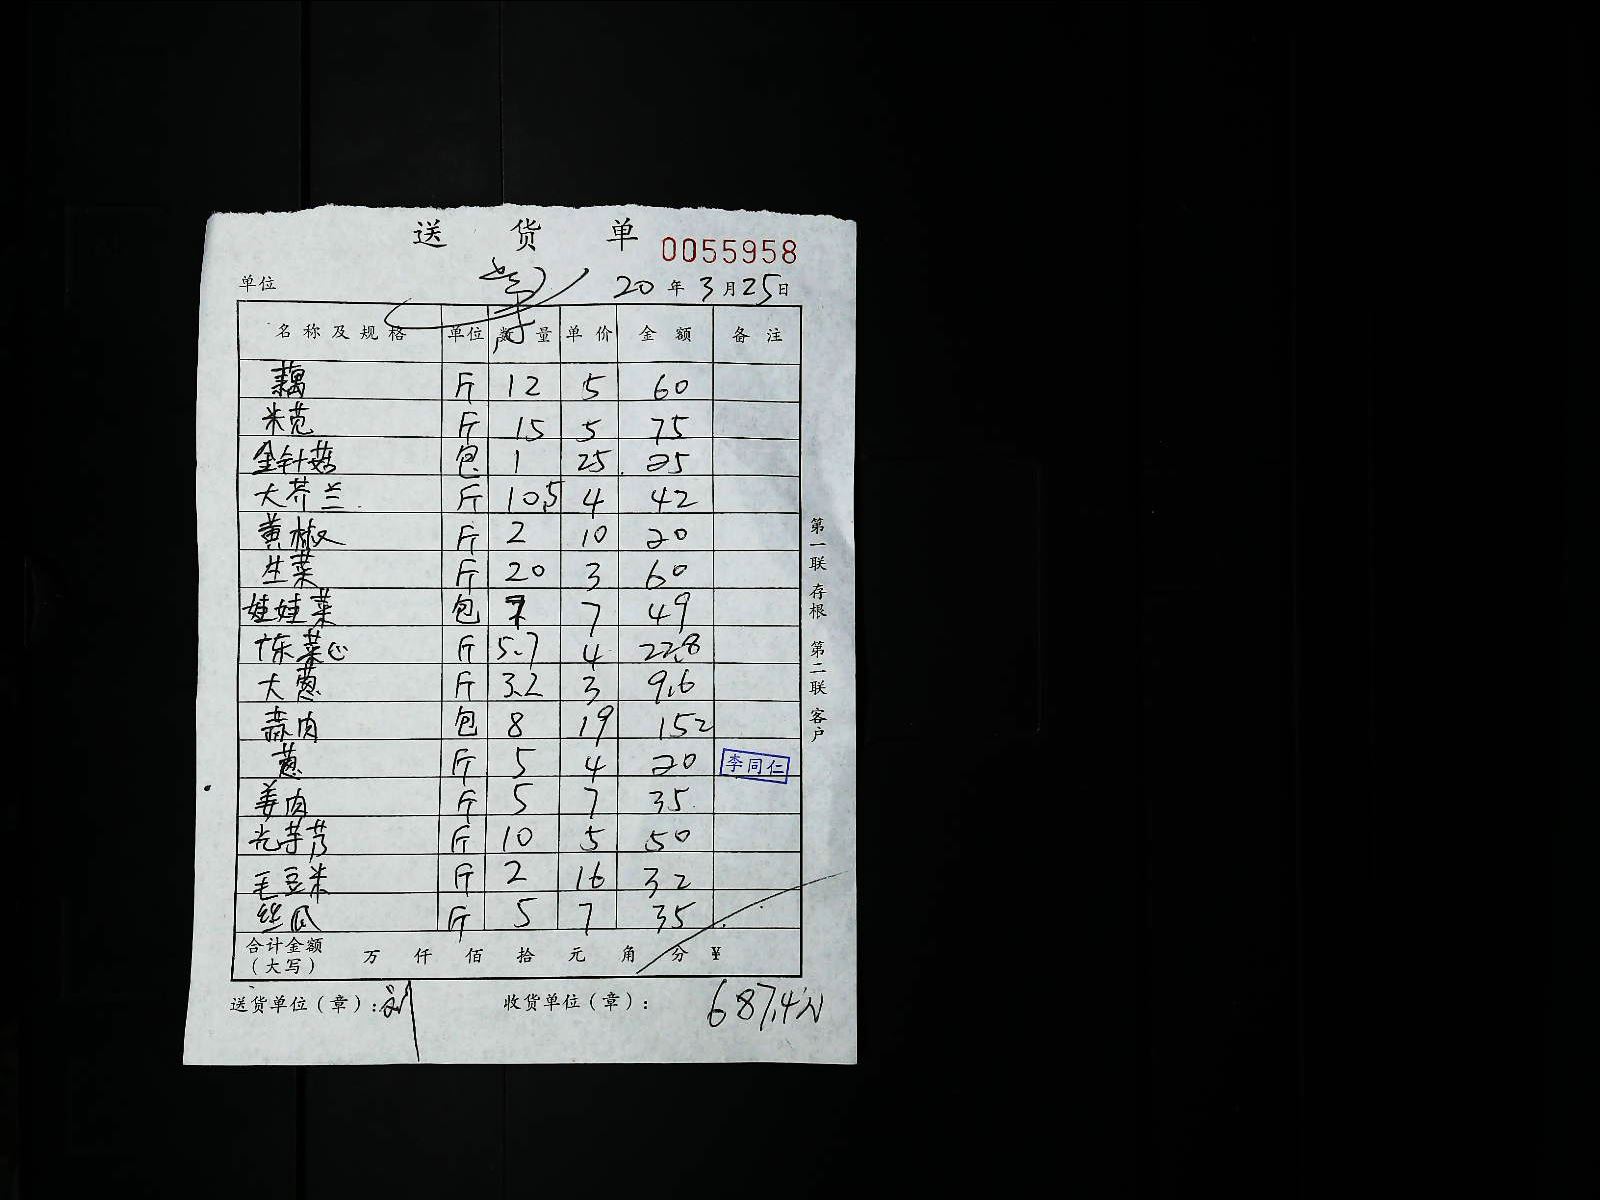 送货单
0055958
单位 20年3月25日
名称及规格 单位 数量 单价 金额 备注
藕 斤 12 5 60
米苋 斤 15 5 75
金针菇 包 1 25 25
大芥兰 斤 10.5 4 42
黄椒 斤 2 10 20
生菜 斤 20 3 60
娃娃菜 包 7 7 49
菜心 斤 5.7 4 22.8
大葱 斤 3.2 3 9.6
蒜肉 包 8 19 152
葱 斤 5 4 20 李同仁
姜肉 斤 5 7 35
光芋艿 斤 10 5 50
毛豆米 斤 2 16 32
丝瓜 斤 5 7 35
合计金额（大写） 万 仟 佰 拾 元 角 分 ¥
送货单位（章）：刘 收货单位（章）： 687.4
第一联 存根 第二联 客户